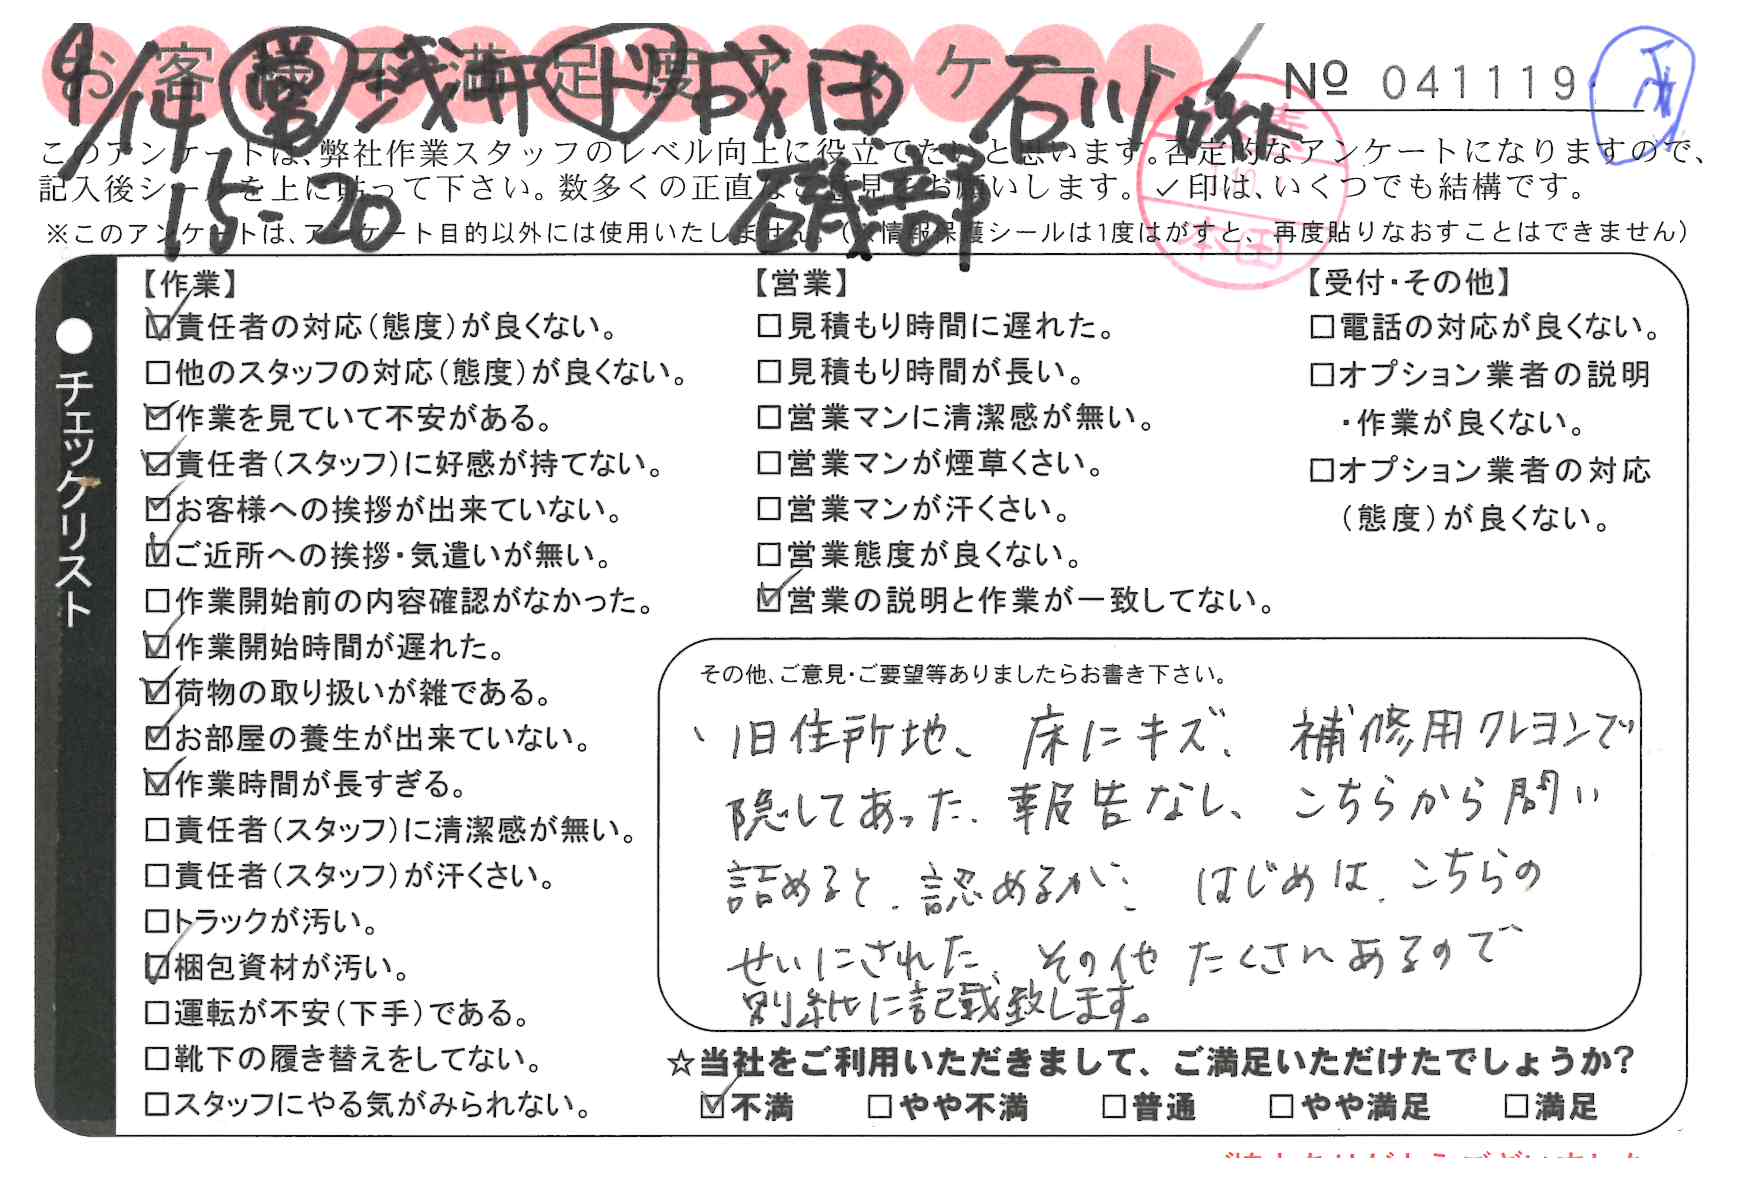 お客様不満足度アンケート
№ 041119
9/14 営 浅井 ド 成田 石川
15-20 磯部
本田
このアンケートは、弊社作業スタッフのレベル向上に役立てたいと思います。否定的なアンケートになりますので、
記入後シールを上に貼って下さい。数多くの正直なご意見をお願いします。✓印は、いくつでも結構です。
※このアンケートは、アンケート目的以外には使用いたしません。(※情報保護シールは1度はがすと、再度貼りなおすことはできません)
●チェックリスト
【作業】
☑責任者の対応(態度)が良くない。
□他のスタッフの対応(態度)が良くない。
☑作業を見ていて不安がある。
☑責任者(スタッフ)に好感が持てない。
☑お客様への挨拶が出来ていない。
☑ご近所への挨拶・気遣いが無い。
□作業開始前の内容確認がなかった。
☑作業開始時間が遅れた。
☑荷物の取り扱いが雑である。
☑お部屋の養生が出来ていない。
☑作業時間が長すぎる。
□責任者(スタッフ)に清潔感が無い。
□責任者(スタッフ)が汗くさい。
□トラックが汚い。
☑梱包資材が汚い。
□運転が不安(下手)である。
□靴下の履き替えをしてない。
□スタッフにやる気がみられない。
【営業】
□見積もり時間に遅れた。
□見積もり時間が長い。
□営業マンに清潔感が無い。
□営業マンが煙草くさい。
□営業マンが汗くさい。
□営業態度が良くない。
☑営業の説明と作業が一致してない。
【受付・その他】
□電話の対応が良くない。
□オプション業者の説明
・作業が良くない。
□オプション業者の対応
(態度)が良くない。
その他、ご意見・ご要望等ありましたらお書き下さい。
、旧住所地、床にキズ、補修用クレヨンで
隠してあった、報告なし、こちらから問い
詰めると、認めるが、はじめは、こちらの
せいにされた、その他たくさんあるので
別紙に記載致します。
☆当社をご利用いただきまして、ご満足いただけたでしょうか?
☑不満 □やや不満 □普通 □やや満足 □満足